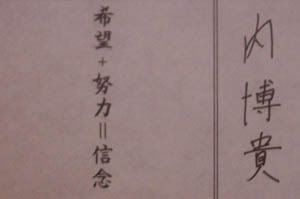 内博貴
希望+努力=信念